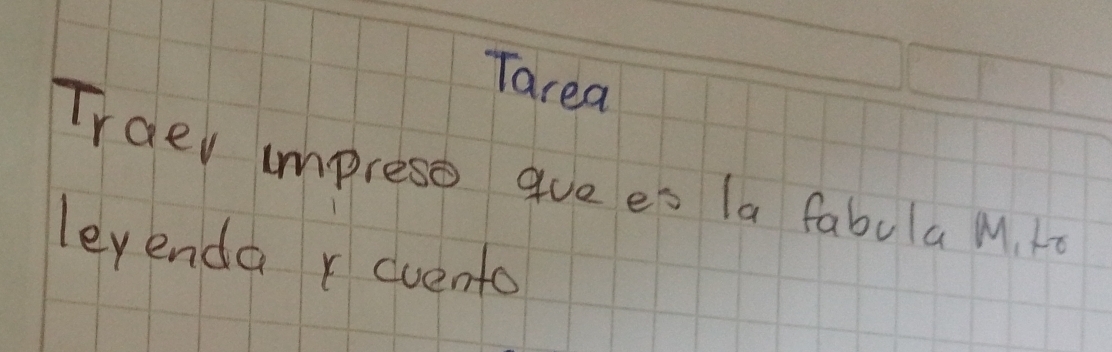 Tarea
Traer impreso que es la fabula Mito
leyenda y cuento